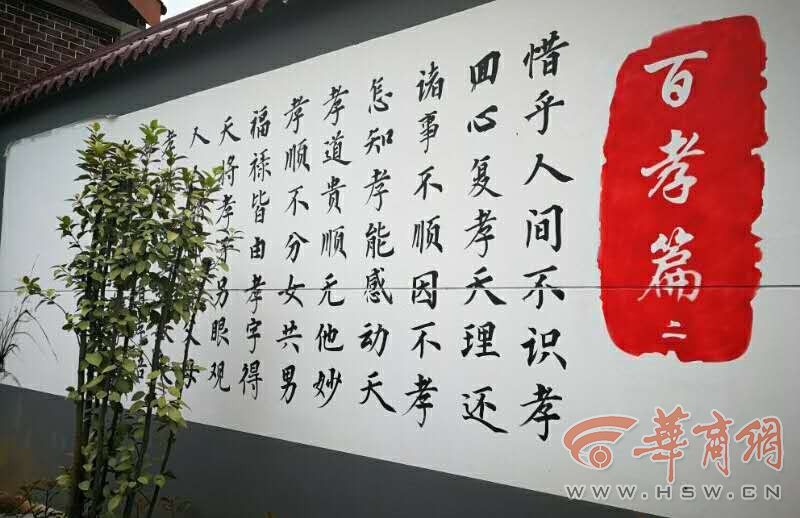 百孝篇 二
惜乎人间不识孝
囬心复孝天理还
诸事不顺因不孝
怎知孝能感动天
孝道贵顺无他妙
孝顺不分女共男
福禄皆由孝字得
天将孝另眼观
人父母
孝
華商網
WWW.HSW.CN